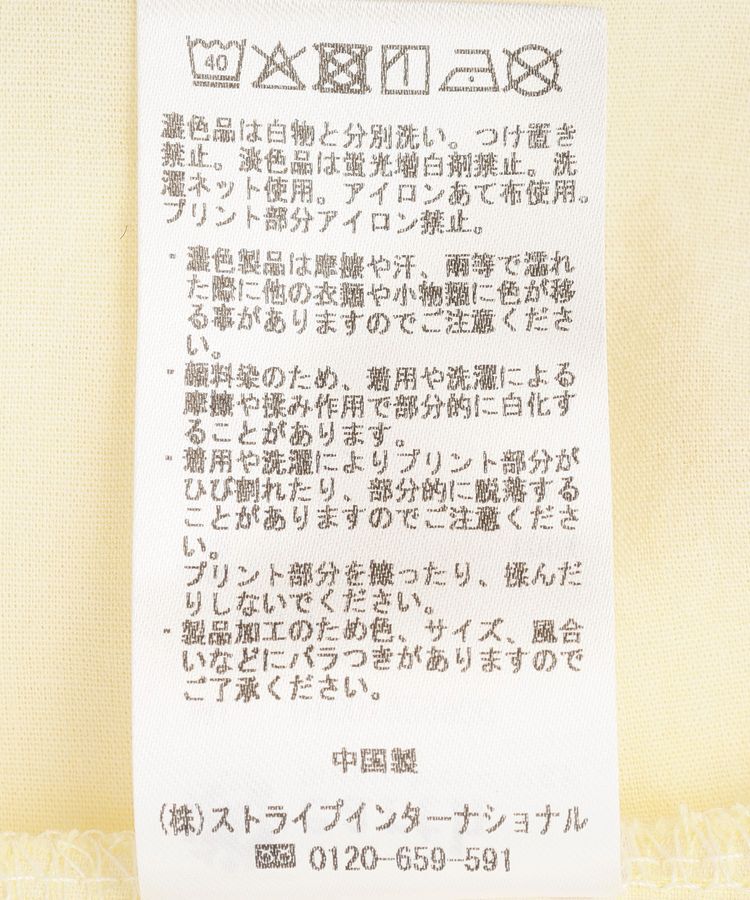 40
濃色品は白物と分別洗い。つけ置き
禁止。淡色品は蛍光増白剤禁止。洗
濯ネット使用。アイロンあて布使用。
プリント部分アイロン禁止。
・濃色製品は摩擦や汗、雨等で濡れ
た際に他の衣類や小物類に色が移
る事がありますのでご注意くださ
い。
・顔料染のため、着用や洗濯による
摩擦や揉み作用で部分的に白化す
ることがあります。
・着用や洗濯によりプリント部分が
ひび割れたり、部分的に脱落する
ことがありますのでご注意くださ
い。
プリント部分を擦ったり、揉んだ
りしないでください。
・製品加工のため色、サイズ、風合
いなどにバラつきがありますので
ご了承ください。
中国製
(株)ストライプインターナショナル
0120-659-591